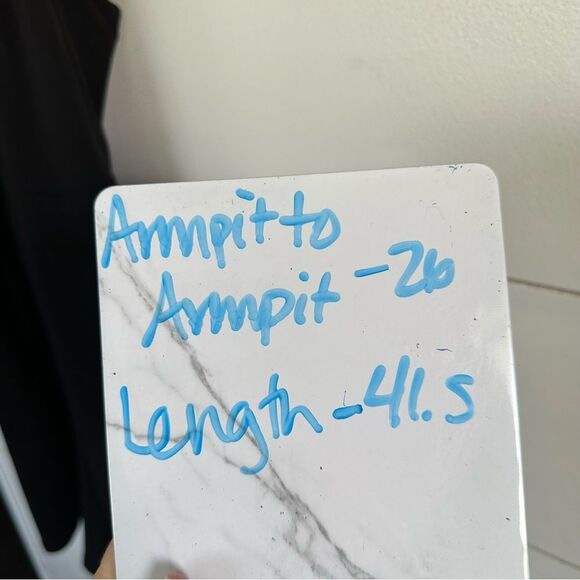 Armpit to
Armpit - 26
Length - 41.5